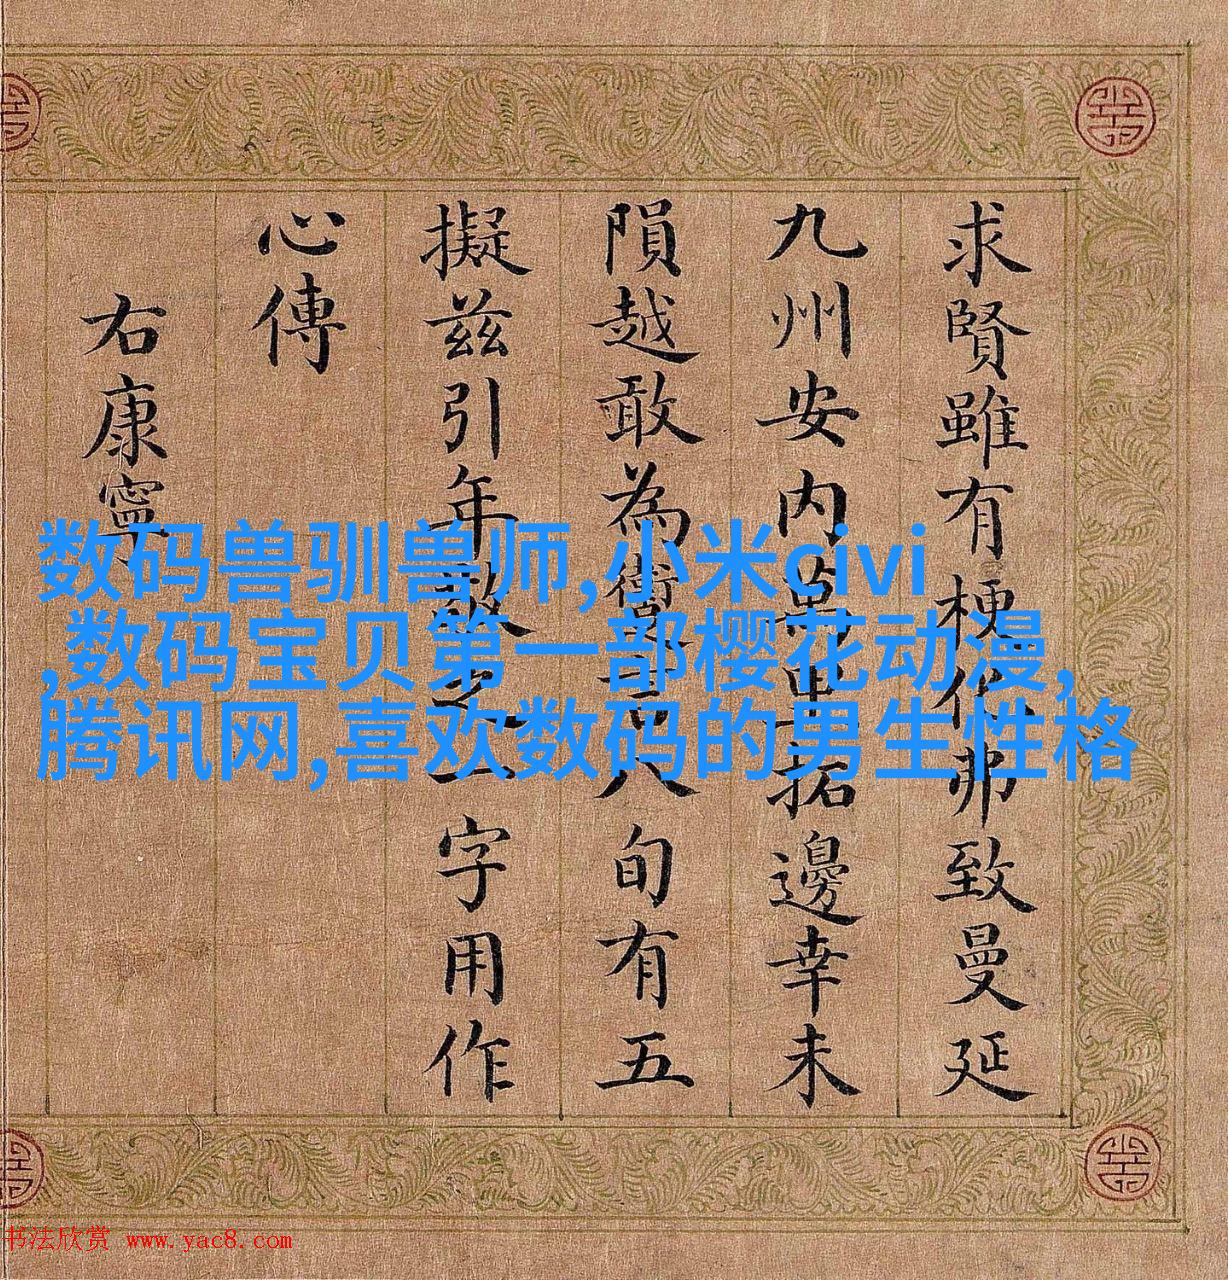 求賢雖有梗化弗致曼延
九州安内拓邊幸未
隕越敢為八旬有五
擬兹引年敬之一字用作
心傳
右康寧
数码兽驯兽师,小米civi
,数码宝贝第一部樱花动漫,
腾讯网,喜欢数码的男生性格
书法欣赏 www.yac8.com